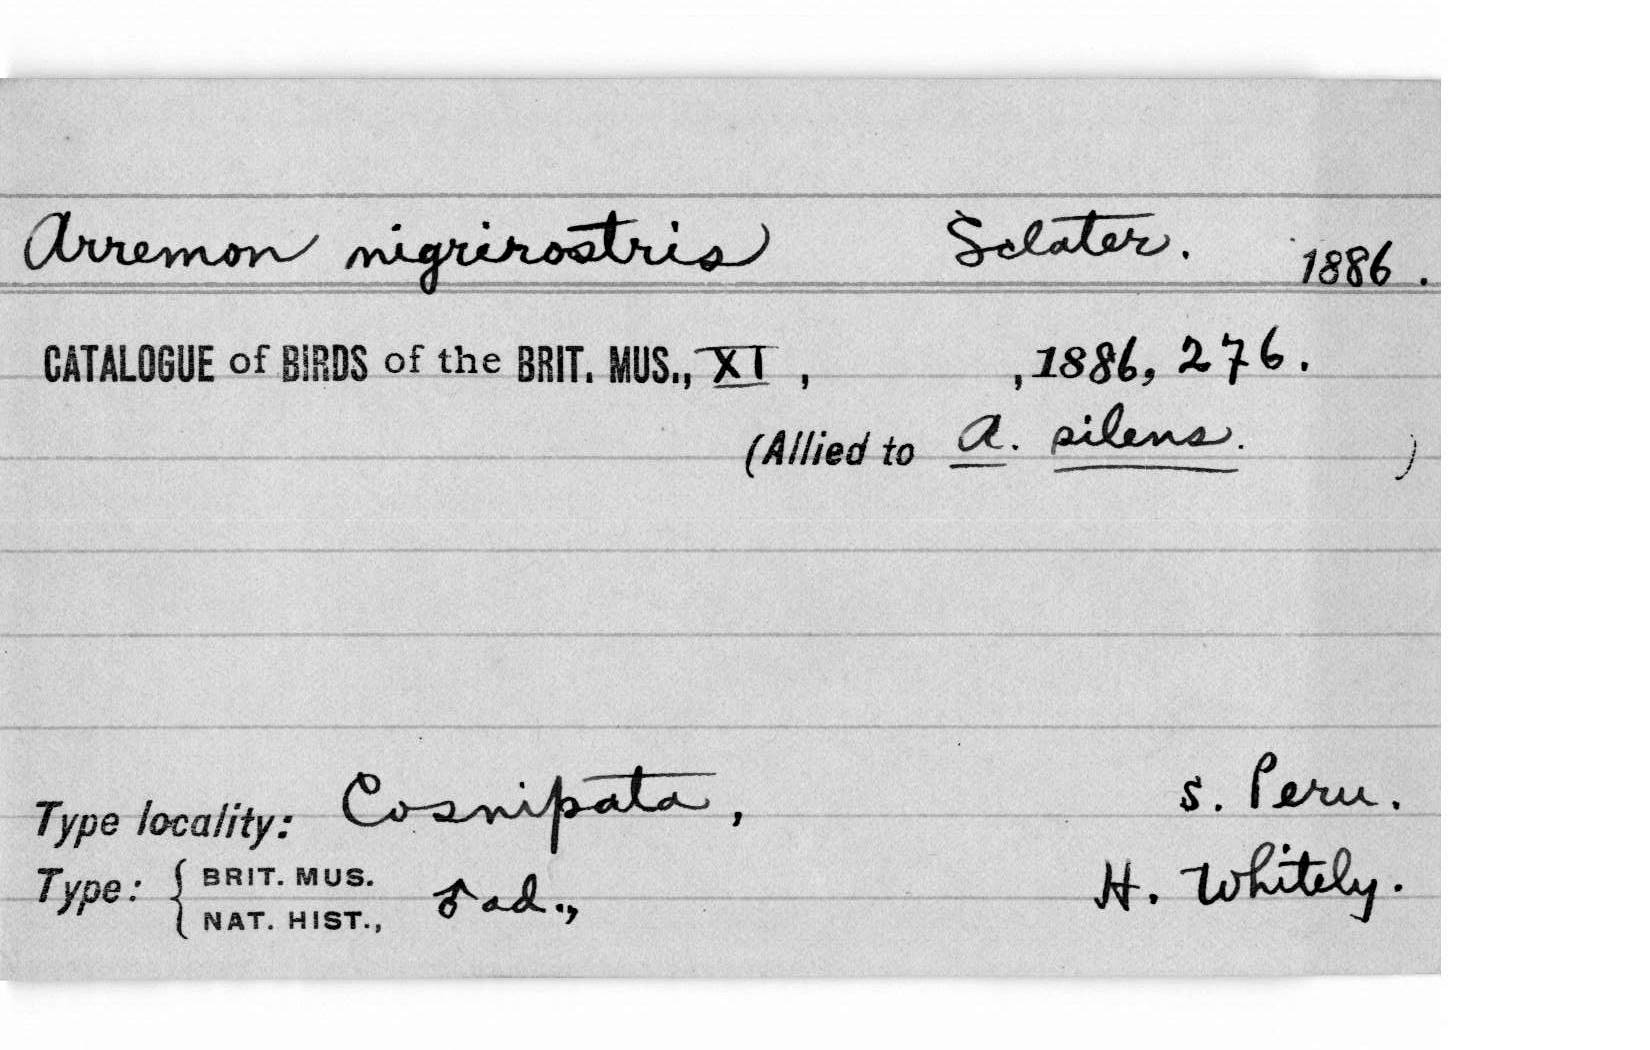 Arremon nigrirostris Sclater. 1886.
CATALOGUE of BIRDS of the BRIT. MUS., XI, , 1886, 276.
(Allied to A. silens. )
Type locality: Cosnipata, S. Peru.
Type: { BRIT. MUS. NAT. HIST., ♂ ad., H. Whitely.